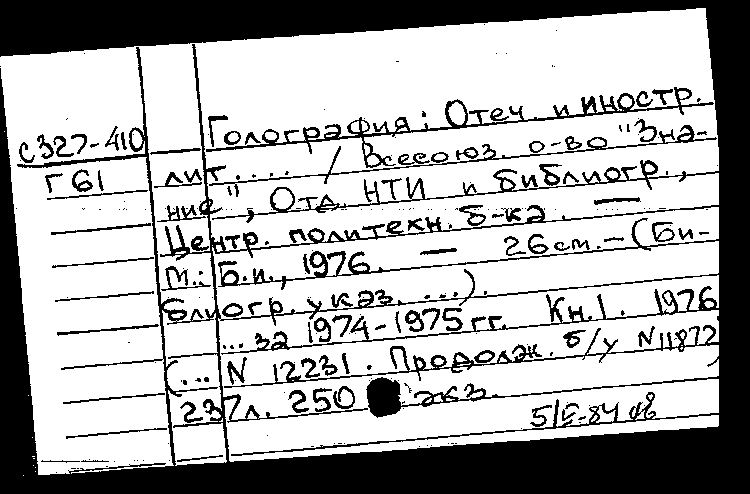 Голография: Отеч. и иностр.
с327-410
лит.... / Всесоюз. о-во "Зна-
Г 61
ние", Отд. НТИ и библиогр.,
Центр. политехн. б-ка. —
М.: Б.и., 1976. — 26 см. — (Би-
блиогр. указ. ...).
... за 1974-1975 гг. Кн. 1. 1976
(... N 12231. Продолж. б/у N 11872)
237 л. 250 экз.